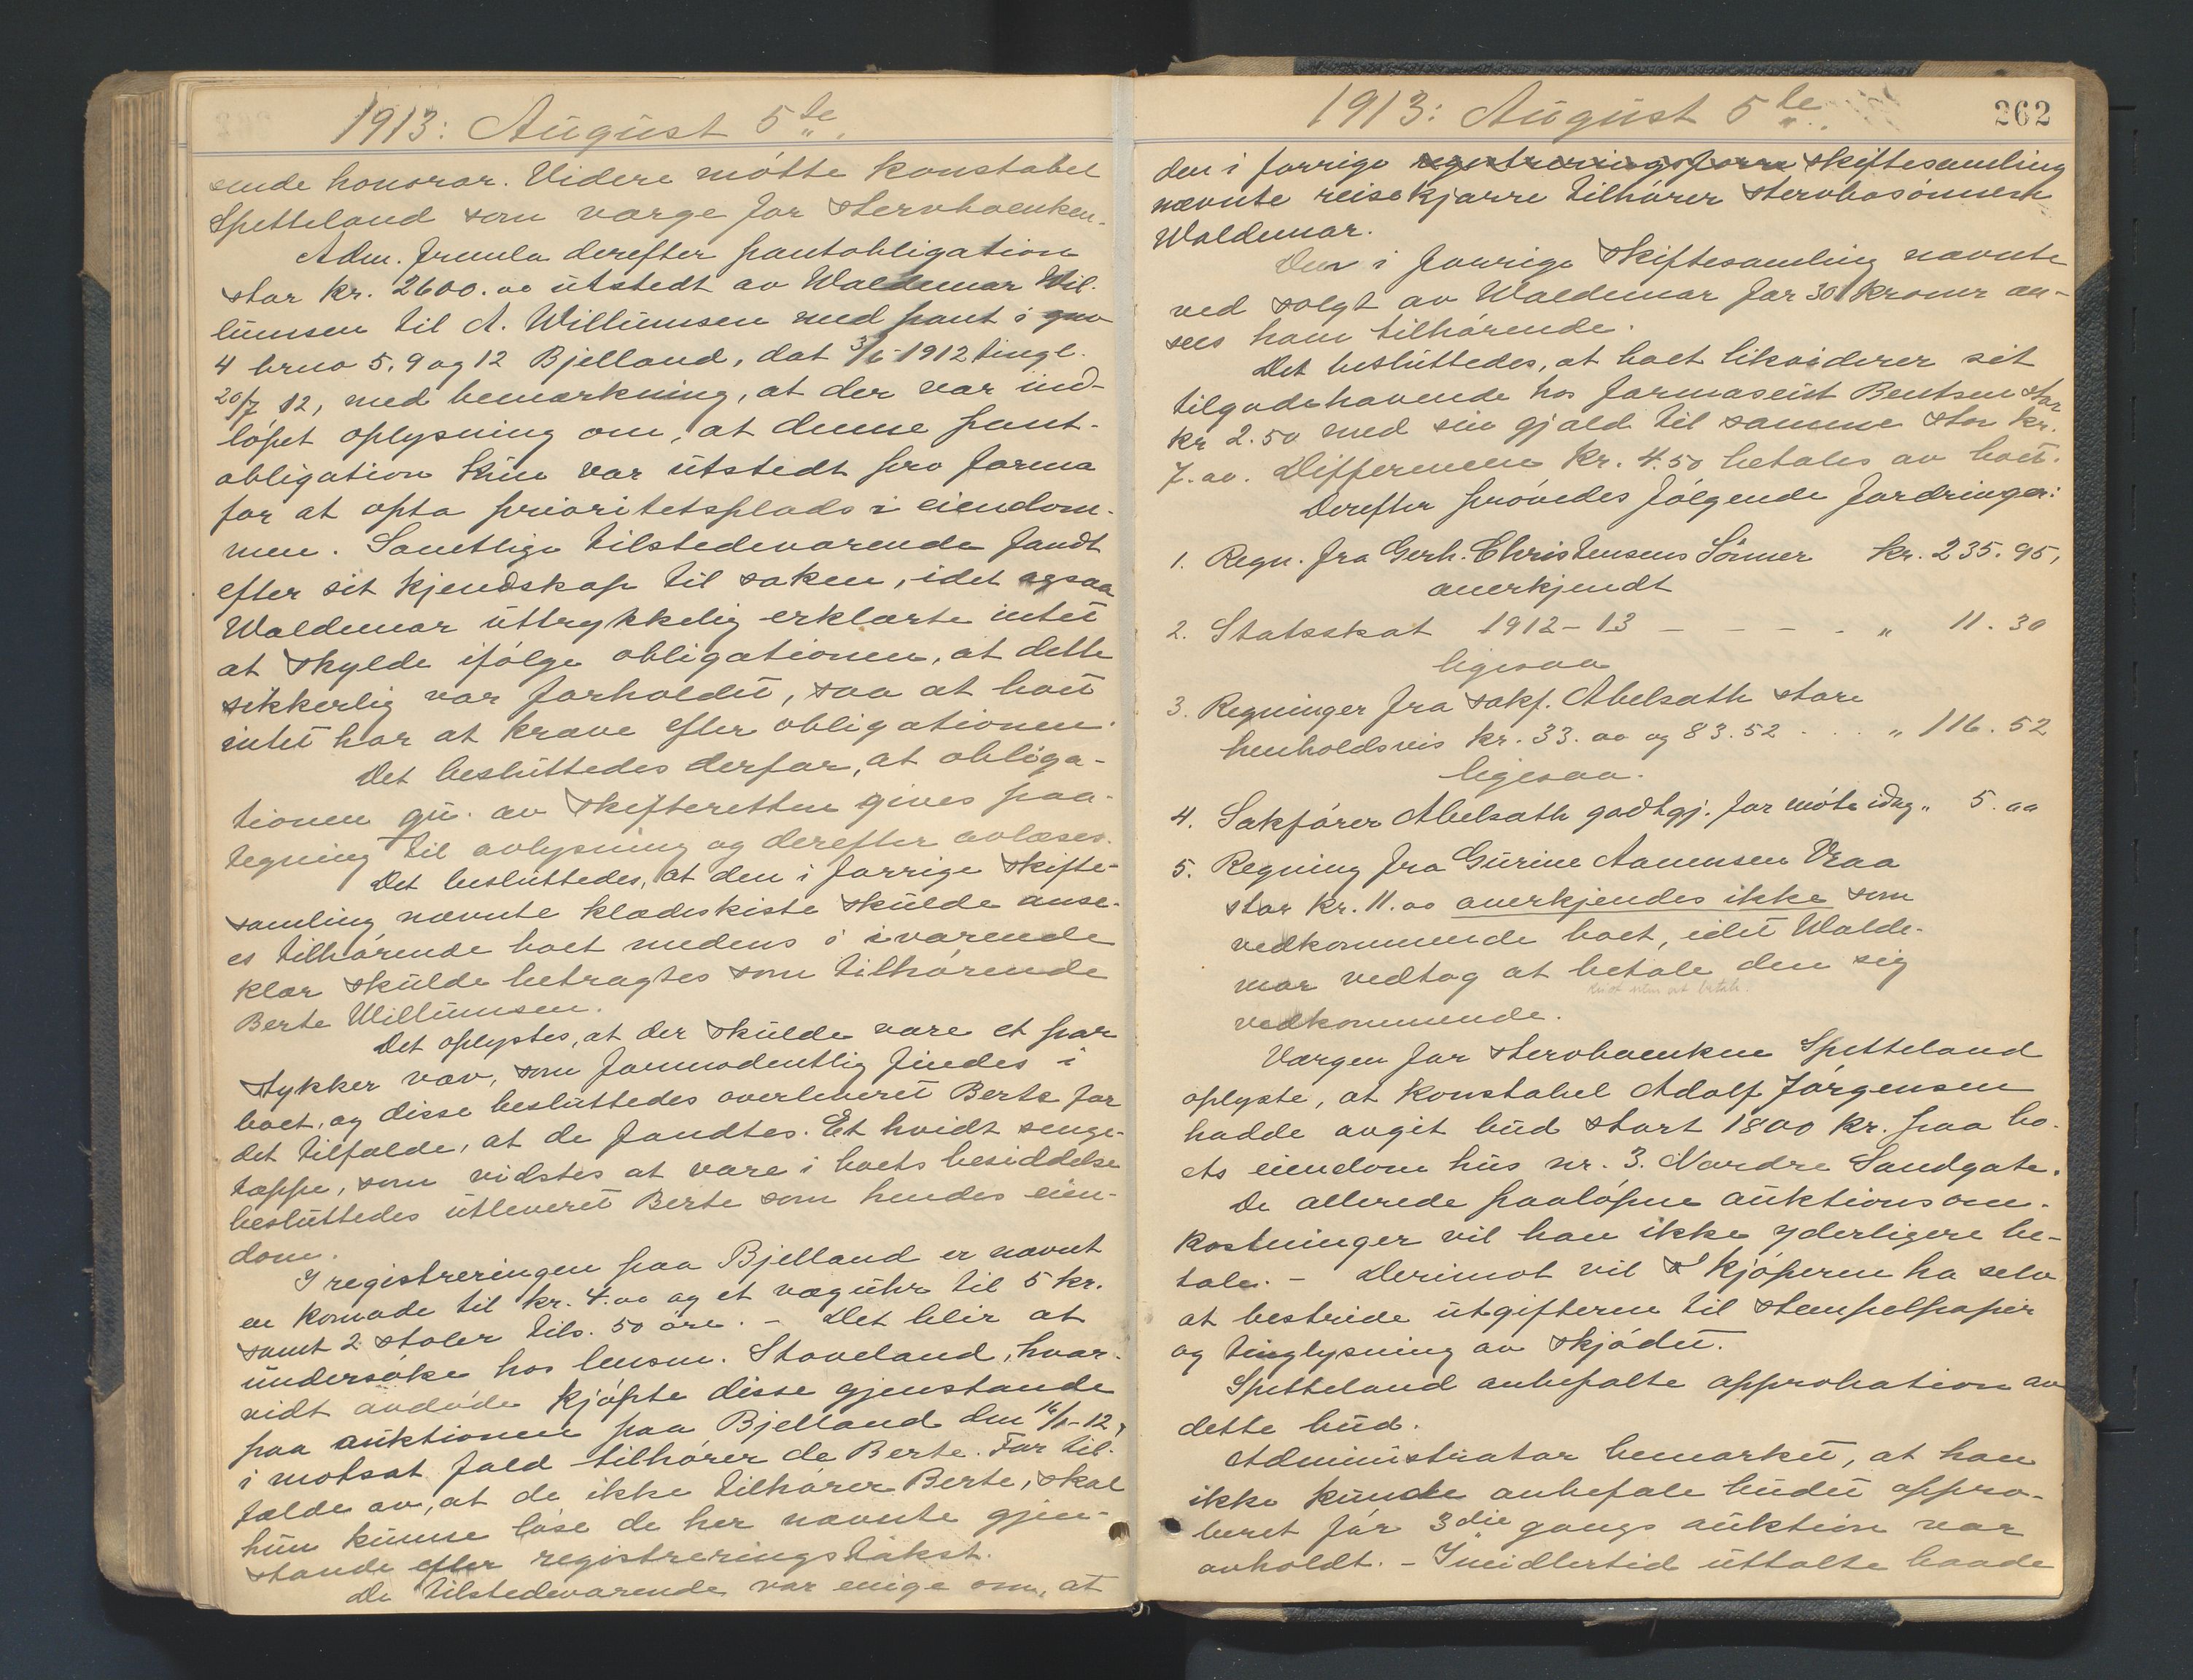 1913: August 5te
sende honorar. Videre møtte konstabel
Spetteland som værge for stervboenken.
Adm. fremla derefter pantobligation
stor kr. 2600.oo utstedt av Waldemar Wil-
lumsen til A. Willumsen med pant i gno
4 brno 5, 9 og 12 Bjelland, dat 3/6-1912 tingl.
20/7 12, med bemerkning, at der var ind-
løpet oplysning om, at denne pant-
obligation kun var utstedt pro forma
for at opta prioritetsplads i eiendom-
men. Samtlige tilstedeværende fandt
efter sit kjendskap til saken, idet ogsaa
Waldemar uttrykkelig erklærte intet
at skylde ifølge obligationen, at dette
sikkerlig var forholdet, saa at boet
intet har at kræve efter obligationen.
Det besluttedes derfor, at obliga-
tionen gu. av skifteretten gives paa-
tegning til avlysning og derefter avlæses.
Det besluttedes, at den i forrige skifte-
samling nævnte klædeskiste skulde anse-
es tilhørende boet medens i iværende
klær skulde betragtes som tilhørende
Berte Willumsen.
Det oplystes, at der skulde være et par
stykker væv, som formodentlig findes i
boet, og disse besluttedes overleveret Berte for
det tilfælde, at de fandtes. Et hvidt senge-
tæppe, som vidstes at være i boets besiddelse
besluttedes utleveret Berte som hendes eien-
dom.
I registreringen paa Bjelland er nævnt
en komode til kr. 4.oo og et væguhr til 5 kr.
samt 2 stoler tils. 50 øre. - Det blir at
undersøke hos lensm. Stoveland, hvor-
vidt avdøde kjøpte disse gjenstande
paa auktionen paa Bjelland den 16/1-12,
i motsat fald tilhører de Berte. For til-
fælde av, at de ikke tilhører Berte, skal
hun kunne løse de her nævnte gjen-
stande efter registreringstakst.
De tilstedeværende var enige om, at
1913: August 5te
262
den i forrige registreringsforre skiftesamling
nævnte reisekjærre tilhører stervbosønnen
Waldemar.
Den i forrige skiftesamling nævnte
ved solgt av Waldemar for 30 kroner an-
sees ham tilhørende.
Det besluttedes, at boet likviderer sit
tilgodehavende hos farmaseut Bentsen stor
kr 2.50 med sin gjæld til samme stor kr.
7.oo. Differencen kr. 4.50 betales av boet.
Derefter prøvedes følgende fordringer:
1. Regn. fra Gerh. Christensens Sønner kr. 235.95,
anerkjendt
2. Statsskat 1912-13 - - - - " 11.30
ligesaa
3. Regninger fra sakf. Abelsæth store
henholdsvis kr. 33.oo og 83.52 . . . " 116.52
ligesaa.
4. Sakfører Abelsæth godtgj. for møte idag " 5.oo
5. Regning fra Gurine Aanensen Vraa
stor kr. 11.oo anerkjendes ikke som
vedkommende boet, idet Walde-
mar vedtog at betale den sig
vedkommende.
Værgen for stervboenken Spetteland
oplyste, at konstabel Adolf Jørgensen
hadde avgit bud stort 1800 kr. paa bo-
ets eiendom hus nr. 3. Nordre Sandgate.
De allerede paaløpne auktionsom-
kostninger vil han ikke yderligere be-
tale. - Derimot vil kjøperen ha selv
at bestride utgifterne til stempelpapir
og tinglysning av skjødet.
Spetteland anbefalte approbation av
dette bud.
Administrator bemerket, at han
ikke kunde anbefale budet appro-
beret før 3die gangs auktion var
avholdt. - Imidlertid uttalte baade